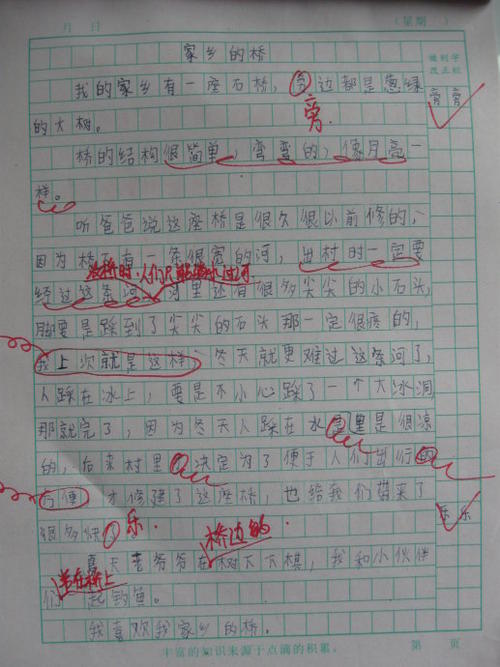 月 日 (星期 )
家乡的桥
做到字字改正蛀
我的家乡有一座石桥，旁边都是葱绿
旁 旁
旁
的大树。
桥的结构很简单，弯弯的，像月亮一
样。
听爸爸说这座桥是很久很以前修的，
因为桥下有一条很宽的河，出村时一定要
没桥时，人们只能过河
经过这条河，河里还有很多尖尖的小石头，
脚要是踩到了尖尖的石头那一定很疼的，
我上次就是这样，冬天就更难过这条河了，
人踩在冰上，要是不小心踩了一个大冰洞
那就完了，因为冬天人踩在水里是很凉
的，后来村里决定为了便于人们出行的
方便才修建了这座桥，也给我们带来了
很多快乐。
乐 乐
桥边的
夏天老爷爷在树下下棋，我和小伙伴
坐在桥上
们一起钓鱼。
我喜欢我家乡的桥。
丰富的知识来源于点滴的积累。 第 页